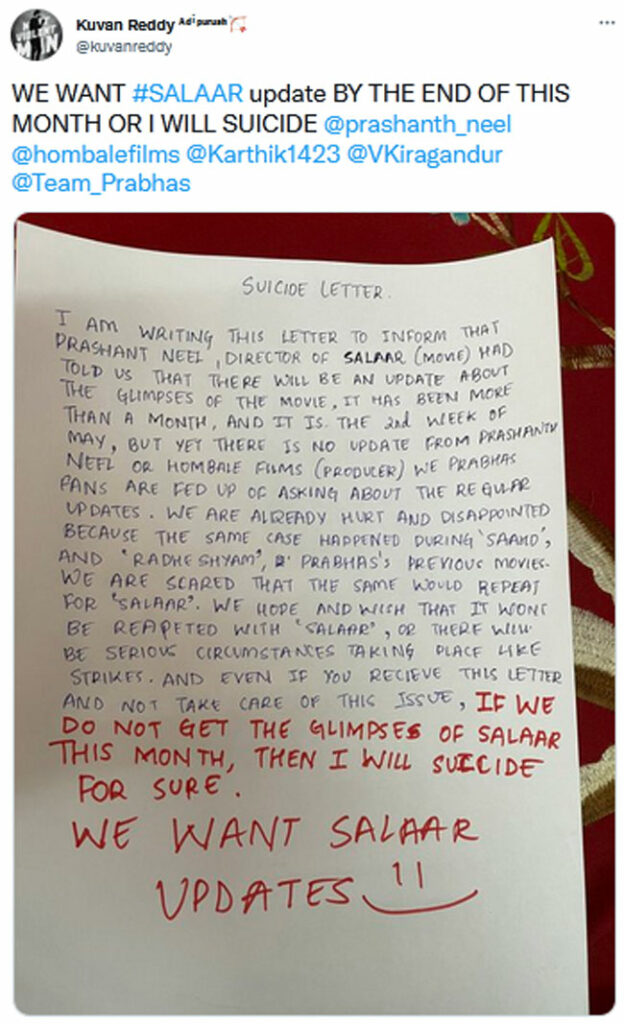 Kuvan Reddy Adipurush
@kuvanreddy
WE WANT #SALAAR update BY THE END OF THIS
MONTH OR I WILL SUICIDE @prashanth_neel
@hombalefilms @Karthik1423 @VKiragandur
@Team_Prabhas
SUICIDE LETTER.
I AM WRITING THIS LETTER TO INFORM THAT
PRASHANT NEEL, DIRECTOR OF SALAAR (MOVIE) HAD
TOLD US THAT THERE WILL BE AN UPDATE ABOUT
THE GLIMPSES OF THE MOVIE, IT HAS BEEN MORE
THAN A MONTH, AND IT IS THE 2nd WEEK OF
MAY, BUT YET THERE IS NO UPDATE FROM PRASHANTH
NEEL OR HOMBALE FILMS (PRODUCER) WE PRABHAS
FANS ARE FED UP OF ASKING ABOUT THE REGULAR
UPDATES. WE ARE ALREADY HURT AND DISAPPOINTED
BECAUSE THE SAME CASE HAPPENED DURING 'SAAHO',
AND 'RADHE SHYAM', PRABHAS'S PREVIOUS MOVIES.
WE ARE SCARED THAT THE SAME WOULD REPEAT
FOR 'SALAAR'. WE HOPE AND WISH THAT IT WONT
BE REAPETED WITH 'SALAAR', OR THERE WILL
BE SERIOUS CIRCUMSTANCES TAKING PLACE LIKE
STRIKES. AND EVEN IF YOU RECIEVE THIS LETTER
AND NOT TAKE CARE OF THIS ISSUE, IF WE
DO NOT GET THE GLIMPSES OF SALAAR
THIS MONTH, THEN I WILL SUICIDE
FOR SURE.
WE WANT SALAAR
UPDATES !!